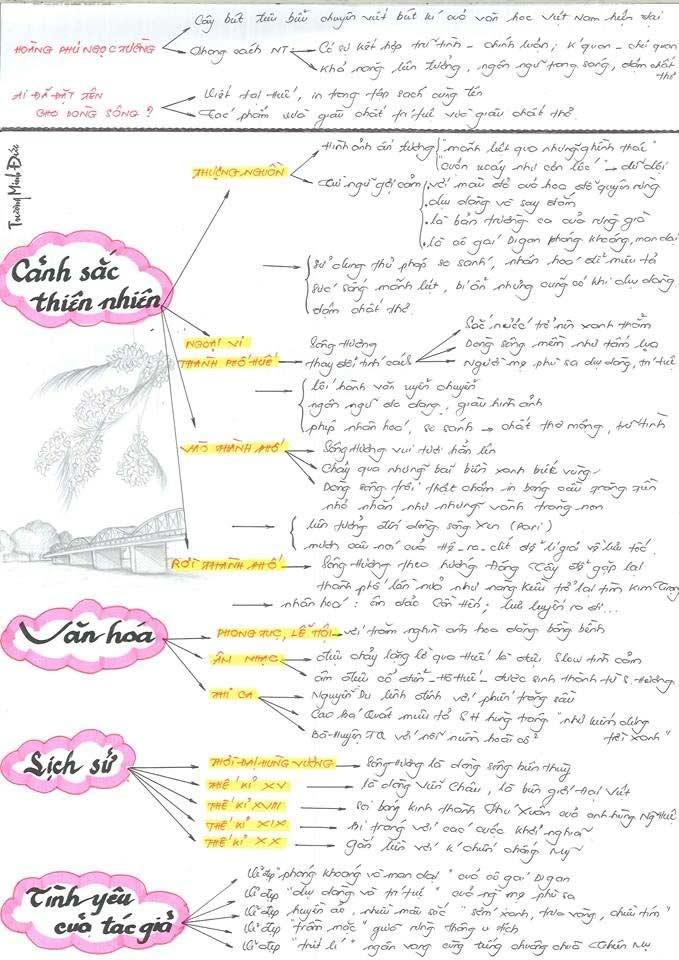 HOÀNG PHỦ NGỌC TƯỜNG
Cây bút tiêu biểu chuyên viết bút kí của văn học Việt Nam hiện đại
Phong cách NT
Có sự kết hợp trữ tình – chính luận; k'quan – chủ quan
Khả năng liên tưởng, ngôn ngữ trong sáng, đậm chất thơ
AI ĐÃ ĐẶT TÊN
CHO DÒNG SÔNG?
Viết tại Huế, in trong tập sách cùng tên
Tác phẩm vừa giàu chất trí tuệ vừa giàu chất thơ.
Trương Minh Đức
Cảnh sắc
thiên nhiên
THƯỢNG NGUỒN
Hình ảnh ấn tượng
"mãnh liệt qua những ghềnh thác"
"cuộn xoáy như cơn lốc" → dữ dội
Từ ngữ gợi cảm
với màu đỏ của hoa đỗ quyên rừng
dịu dàng và say đắm
là bản trường ca của rừng già
là cô gái Digan phóng khoáng, man dại
sử dụng thủ pháp so sánh, nhân hoá để miêu tả
sức sống mãnh liệt, bí ẩn nhưng cũng có khi dịu dàng
đậm chất thơ.
NGOẠI VI
THÀNH PHỐ HUẾ
Sông Hương
thay đổi tính cách
Sắc nước trở nên xanh thẳm
Dòng sông mềm như tấm lụa
Người mẹ phù sa dịu dàng, trí tuệ
lối hành văn uyển chuyển
ngôn ngữ đa dạng, giàu hình ảnh
phép nhân hoá, so sánh → chất thơ mộng, trữ tình
VÀO THÀNH PHỐ
Sông Hương vui tươi hẳn lên
Chảy qua những bãi biền xanh biếc vùng
Dòng sông trôi thật chậm in bóng cầu Tràng Tiền
nhỏ nhắn như những vành trăng non
liên tưởng đến dòng sông Xen (Pari)
mượn câu nói của Hê-ra-clít để lí giải về lưu tốc.
RỜI THÀNH PHỐ
Sông Hương theo hướng Đông Tây để gặp lại
thành phố lần nữa như nàng Kiều trở lại tìm Kim Trọng
nhân hoá: ôm đảo Cồn Hến; lưu luyến ra đi...
Văn hóa
PHONG TỤC, LỄ HỘI
với trăm nghìn ánh hoa đăng bồng bềnh
ÂM NHẠC
điệu chảy lặng lờ qua Huế là điệu Slow tình cảm
âm điệu cổ điển – Hồ Huế – được sinh thành từ S.Hương
THI CA
Nguyễn Du lênh đênh với phiến trăng sầu
Cao Bá Quát miêu tả SH hùng tráng "như kiếm dựng
trời xanh"
Bà Huyện TQ với nỗi niềm hoài cổ
Lịch sử
THỜI ĐẠI HÙNG VƯƠNG
Sông Hương là dòng sông biên thuỳ
THẾ KỈ XV
là dòng Viễn Châu, là biên giới Đại Việt
THẾ KỈ XVIII
Soi bóng kinh thành Phú Xuân của anh hùng Ng.Huệ
THẾ KỈ XIX
Bi tráng với các cuộc khởi nghĩa
THẾ KỈ XX
gắn liền với k'chiến chống Mỹ
Tình yêu
của tác giả
Vẻ đẹp "phóng khoáng và man dại" của cô gái Digan
Vẻ đẹp "dịu dàng và trí tuệ" của ng mẹ phù sa
Vẻ đẹp huyền ảo, nhiều màu sắc "sớm xanh, trưa vàng, chiều tím"
Vẻ đẹp "trầm mặc" giữa rừng thông u tịch
Vẻ đẹp "triết lí" ngân vang cùng tiếng chuông chùa Thiên Mụ